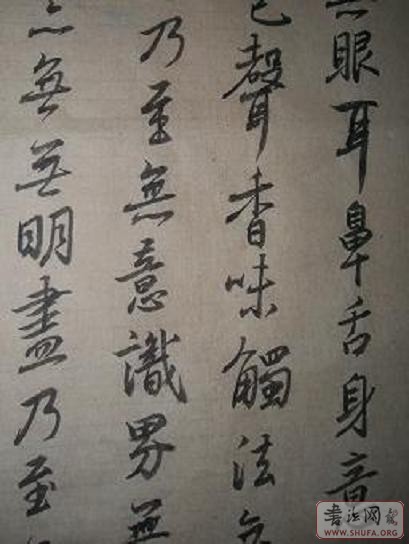 無眼耳鼻舌身意
色聲香味觸法無
乃至無意識界無
亦無無明盡乃至
書法网
WWW.SHUFA.ORG